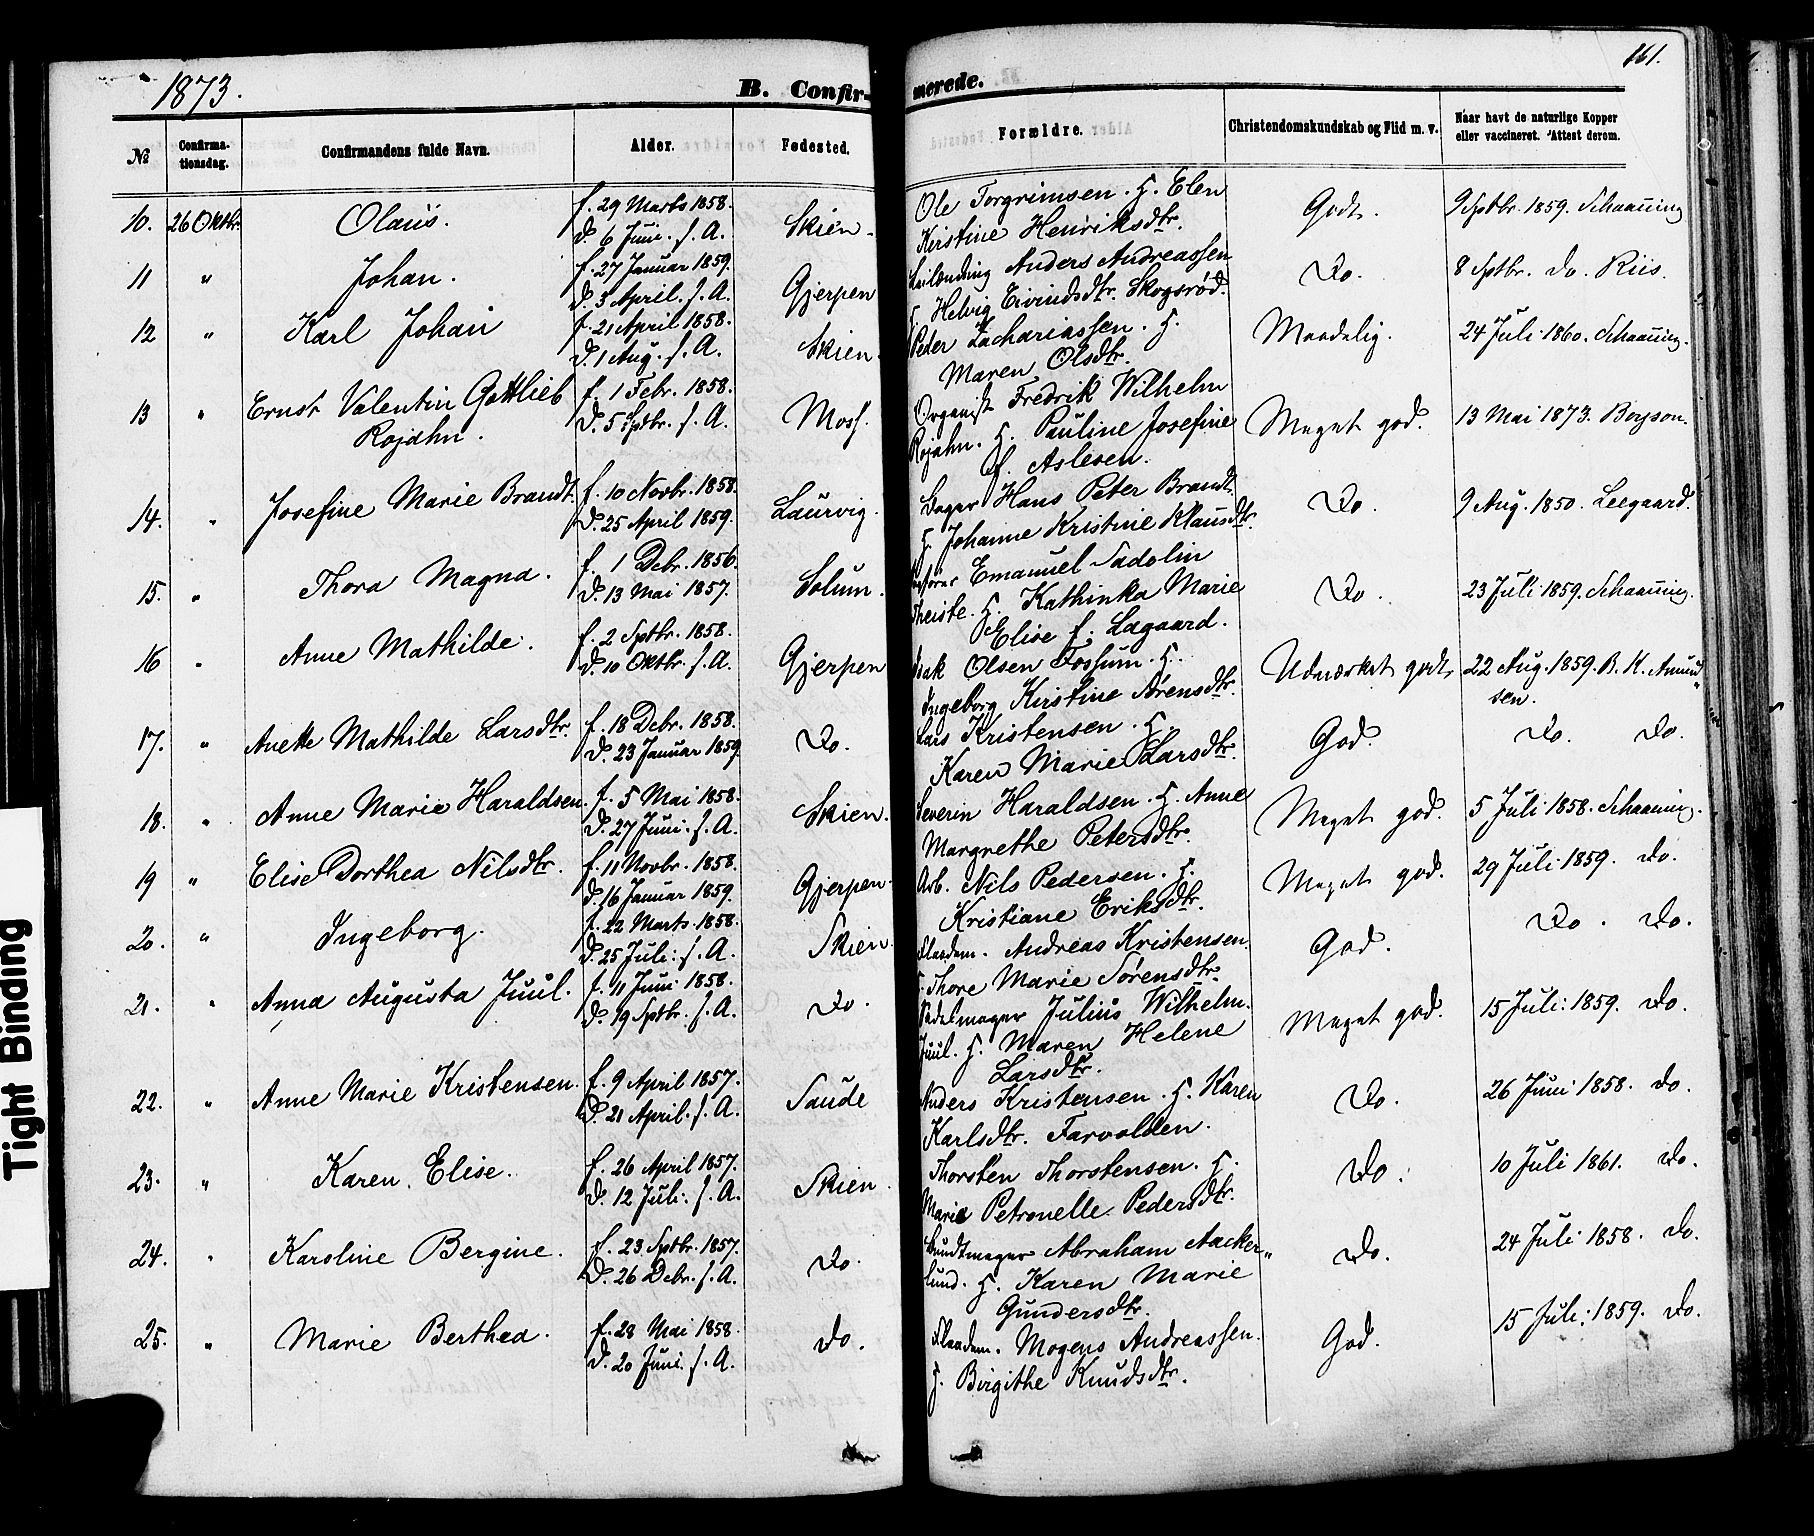 1873.
B. Confir-
merede.
161.
№
Confirma-
tionsdag.
Confirmandens fulde Navn.
Alder.
Fødested.
Forældre.
Christendomskundskab og Flid m. v.
Naar havt de naturlige Kopper
eller vaccineret. Attest derom.
10. 26 Oktbr. Olaus. f. 29 Marts 1858. Skien. Ole Torgrimsen. H. Elen Godt. 9 Sptbr. 1859. Schaaning
D. 6 Juni. s. A. Kirstine Henriksdtr.
11 " Johan. f. 27 Januar 1859. Gjerpen Leilænding Anders Andreassen Do. 8 Sptbr. Do. Riis.
D. 3 April. s. A. H. Helvig Eivindsdtr. Skogsrød.
12 " Karl Johan f. 21 April 1858. Skien. Peder Zachariassen. H. Maadelig. 24 Juli 1860. Schaaning.
D. 1 Aug. s. A. Maren Olsdtr.
13 " Ernst Valentin Gottlieb f. 1 Febr. 1858. Moss. Organist Fredrik Wilhelm Meget god. 13 Mai 1873. Boyson.
Rojahn. D. 5 Sptbr. s. A. Rojahn. H. Pauline Josefine
f. Aslesen.
14. " Josefine Marie Brandt. f. 10 Novbr. 1858. Laurvig. Bager Hans Peter Brandt Do. 9 Aug. 1850. Leegaard.
D. 25 April 1859. H. Johanne Kristine Klausdtr.
15. " Thora Magna. f. 1 Debr. 1856. Solum. Emanuel Sadolin Do. 23 Juli 1859. Schaaning.
D. 13 Mai 1857. Theiste. H. Kathinka Marie
Elise f. Lagaard.
16 " Anne Mathilde. f. 2 Sptbr. 1858. Gjerpen Isak Olsen Fossum. H. Udmærket godt 22 Aug. 1859. B. K. Amund"
D. 10 Oktbr. s. A. Ingeborg Kirstine Sørensdtr. sen.
17. " Anette Mathilde Larsdtr. f. 18 Debr. 1858. Do. Lars Kristensen. H. God. Do. Do.
D. 23 Januar 1859 Karen Marie Larsdtr.
18. " Anne Marie Haraldsen. f. 5 Mai 1858. Skien. Severin Haraldsen. H. Anne Meget god. 5 Juli 1858. Schaaning.
D. 27 Juni. s. A. Margrethe Petersdtr.
19 " Elise Dorthea Nilsdtr. f. 11 Novbr. 1858. Gjerpen. Arb. Nils Pedersen. H. Meget god. 29 Juli 1859. Do.
D. 16 Januar 1859. Kristiane Eriksdtr.
20. " Ingeborg. f. 22 Marts 1858. Skien. Flaadem. Andreas Kristensen. God. Do. Do.
D. 25 Juli. s. A. H. Thore Marie Sørensdtr.
21. " Anna Augusta Juul. f. 11 Juni 1858. Do. Sadelmager Julius Wilhelm Meget god. 15 Juli 1859. Do.
D. 19 Sptbr. s. A. Juul. H. Maren Helene
Larsdtr.
22. " Anne Marie Kristensen. f. 9 April 1857. Saude Anders Kristensen. H. Karen Do. 26 Juni 1858. Do.
D. 21 April. s. A. Karlsdtr. Farvolden.
23. " Karen Elise. f. 26 April 1857. Skien. Thorsten Thorstensen. H. Do. 10 Juli 1861. Do.
D. 12 Juli. s. A. Marie Petronelle Pedersdtr.
24. " Karoline Bergine. f. 23 Sptbr. 1857. Do. Bundtmager Abraham Aacker" Do. 24 Juli 1858. Do.
D. 26 Debr. s. A. lund. H. Karen Marie
Gundersdtr.
25. " Marie Berthea. f. 28 Mai 1858. Do. Flaadem. Mogens Andreassen. God. 15 Juli 1859. Do.
D. 20 Juni. s. A. H. Birgithe Knudsdtr.
Tight Binding